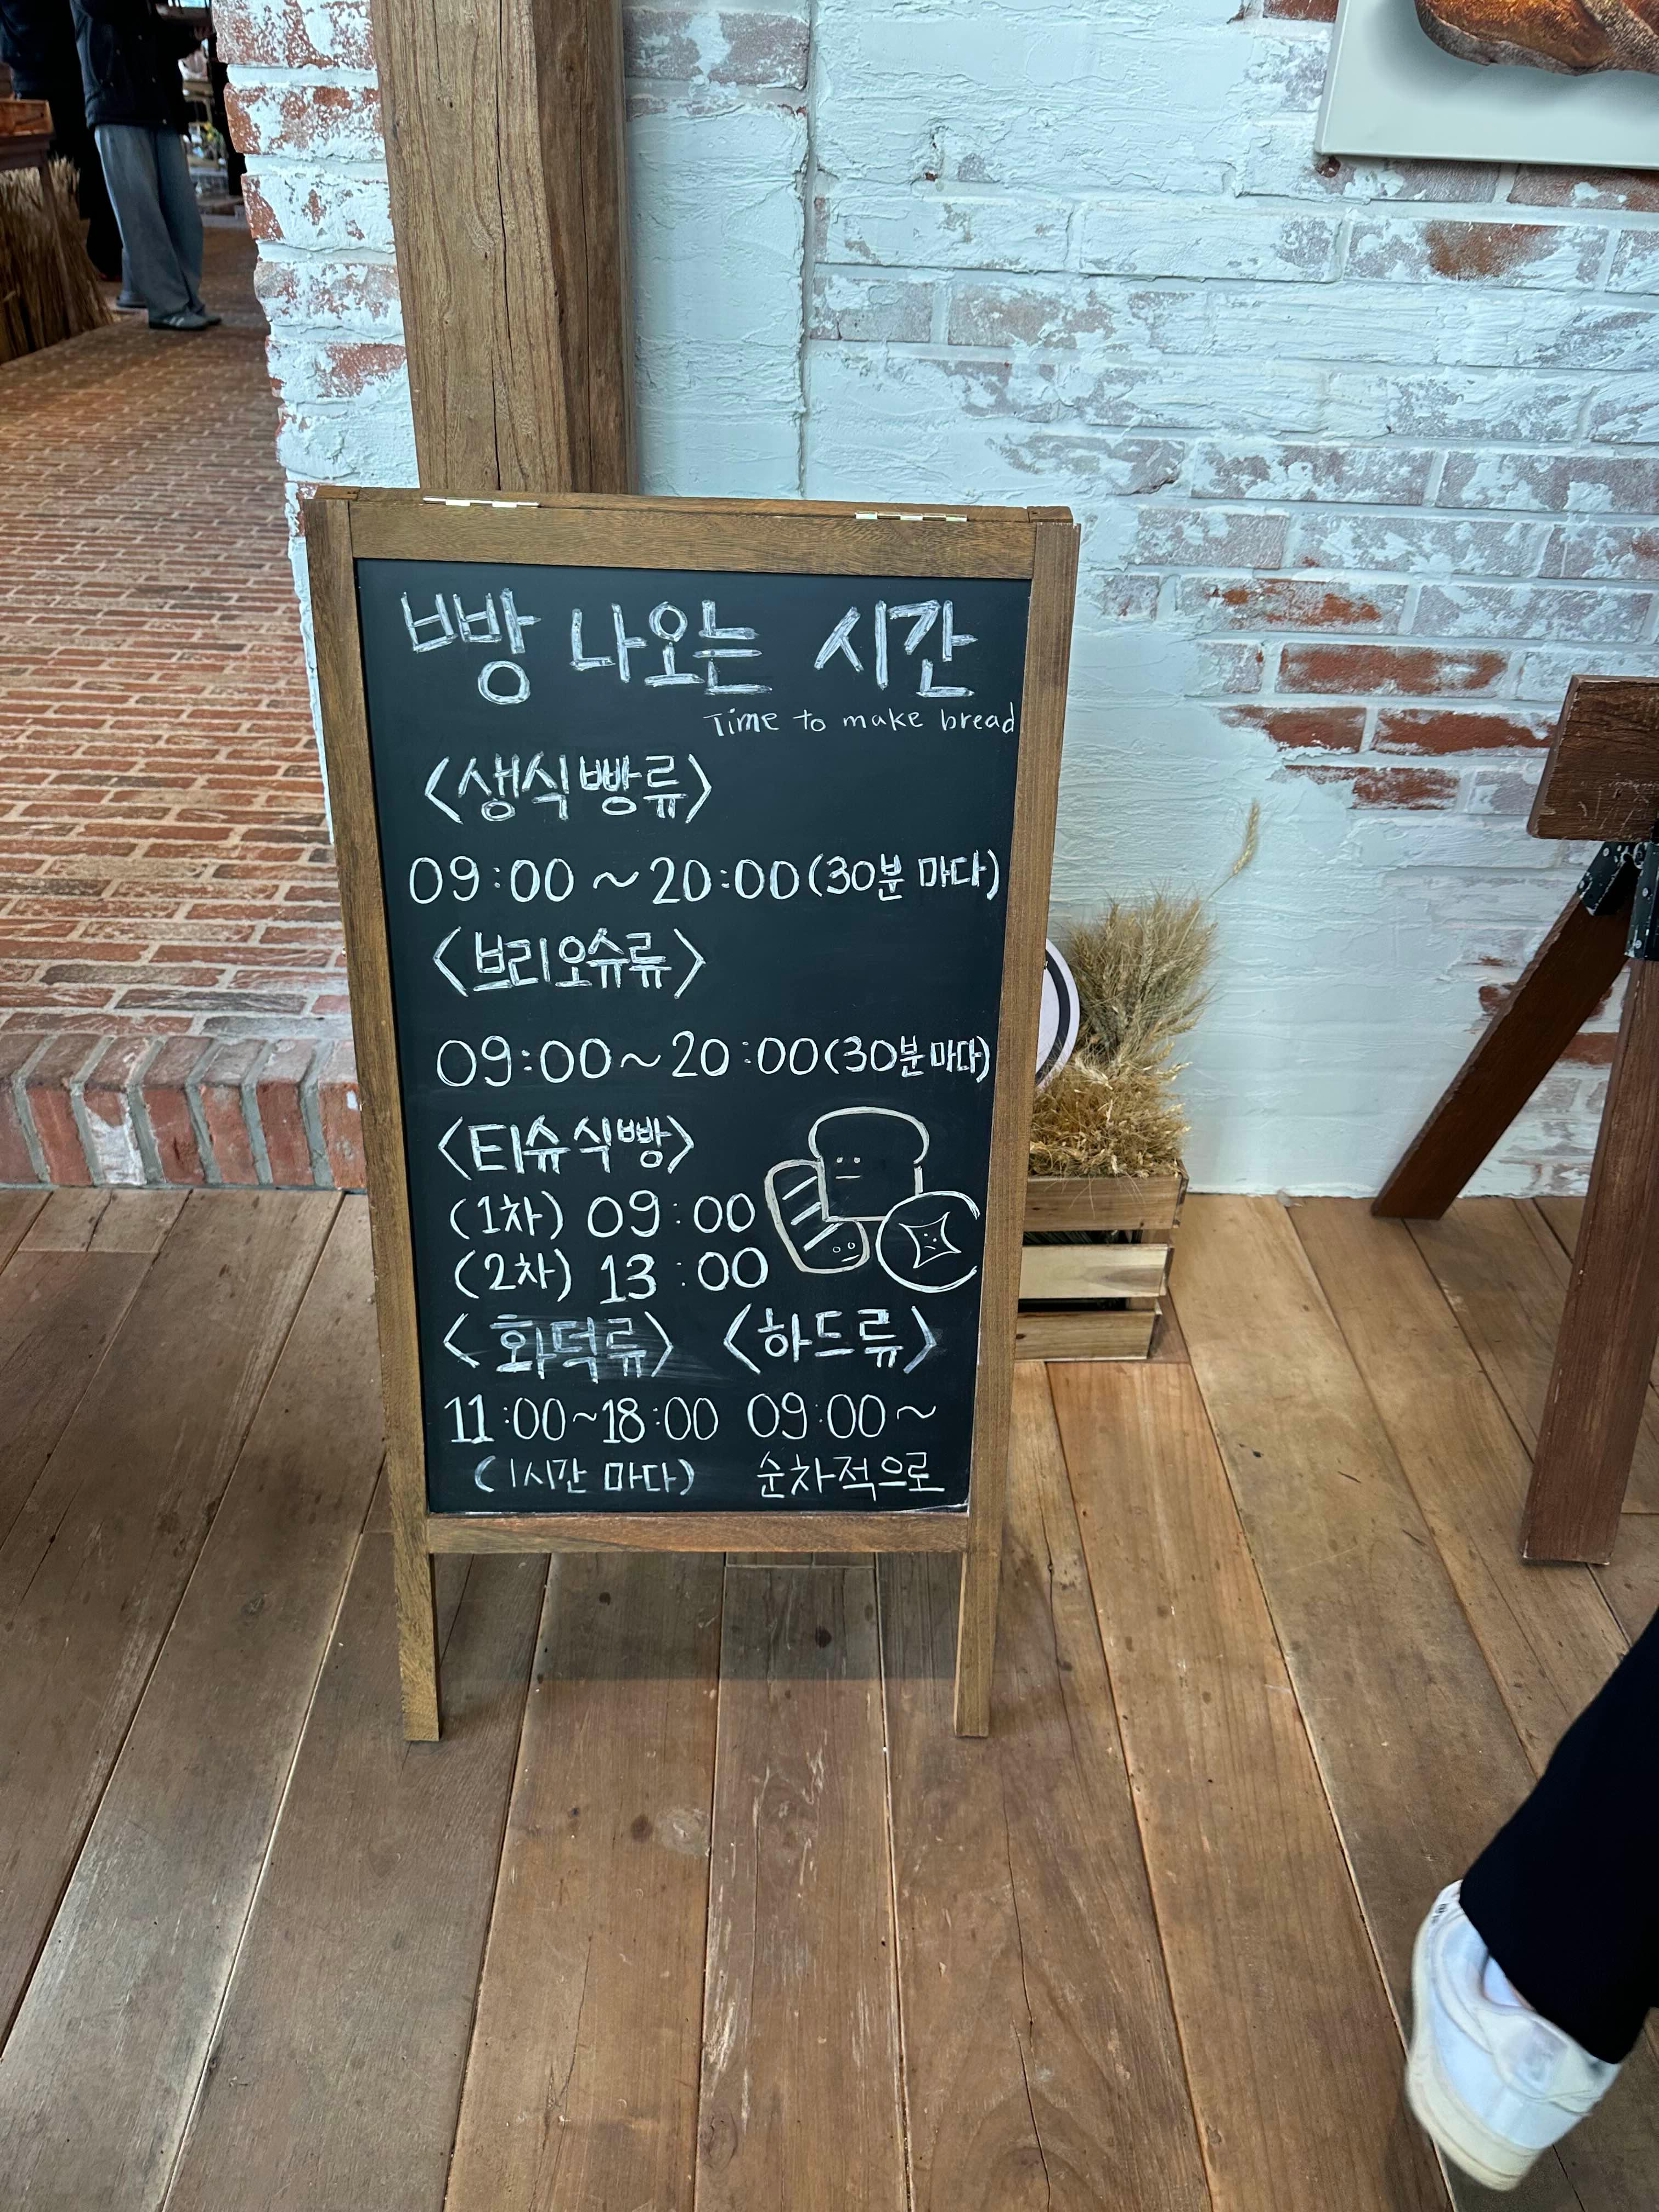 빵 나오는 시간
Time to make bread
<생식빵류>
09:00 ~ 20:00(30분 마다)
<브리오슈류>
09:00~20:00(30분 마다)
<티슈식빵>
(1차) 09:00
(2차) 13:00
<화덕류> <하드류>
11:00~18:00 09:00~
(1시간 마다) 순차적으로